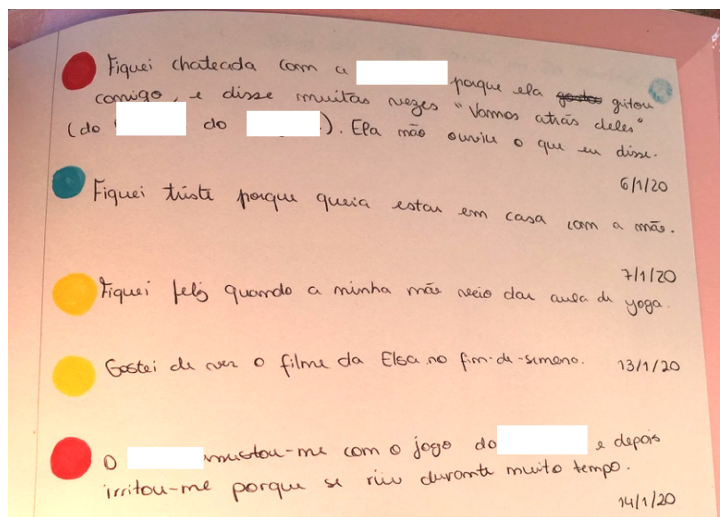 Fiquei chateada com a porque ela gritou
comigo, e disse muitas vezes "Vamos atrás deles"
(do do ). Ela não ouviu o que eu disse.
6/1/20
Fiquei triste porque queria estar em casa com a mãe.
7/1/20
Fiquei feliz quando a minha mãe veio dar aula de yoga.
Gostei de ver o filme da Elsa no fim-de-semana. 13/1/20
O com o jogo do e depois
irritou-me porque se riu durante muito tempo.
14/1/20